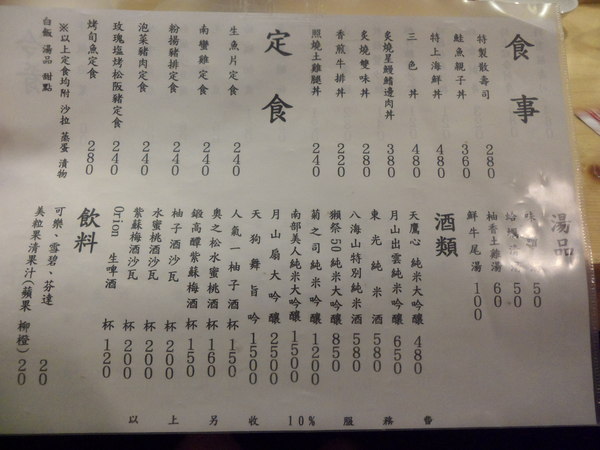 食事
特製散壽司 280
鮭魚親子丼 360
特上海鮮丼 480
三色丼 480
炙燒星鰻鰭邊肉丼 380
炙燒雙味丼 280
香煎牛排丼 220
照燒土雞腿丼 240
定食
生魚片定食 240
南蠻雞定食 240
粉揚豬排定食 240
泡菜豬肉定食 240
玫瑰塩烤松阪豬定食 240
烤旬魚定食 280
※以上定食均附 沙拉 蒸蛋 漬物
白飯 湯品 甜點
湯品
50
50
柚香土雞湯 60
鮮牛尾湯 100
酒類
天鷹心 純米大吟釀 480
月山出雲純米吟釀 650
東光純米酒 580
八海山特別純米酒 580
獺祭50純米大吟釀 850
菊之司純米吟釀 1200
南部美人純米大吟釀 1500
月山扇大吟釀 2500
天狗舞旨吟 1500
人氣一柚子酒 杯150
奥之松水蜜桃酒 杯160
鍛高譚紫蘇梅酒 杯150
柚子酒沙瓦 杯200
水蜜桃酒沙瓦 杯200
紫蘇梅酒沙瓦 杯200
Orion 生啤酒 杯120
飲料
可樂、雪碧、芬達 20
美粒果清果汁(蘋果 柳橙) 20
以上另收10%服務費